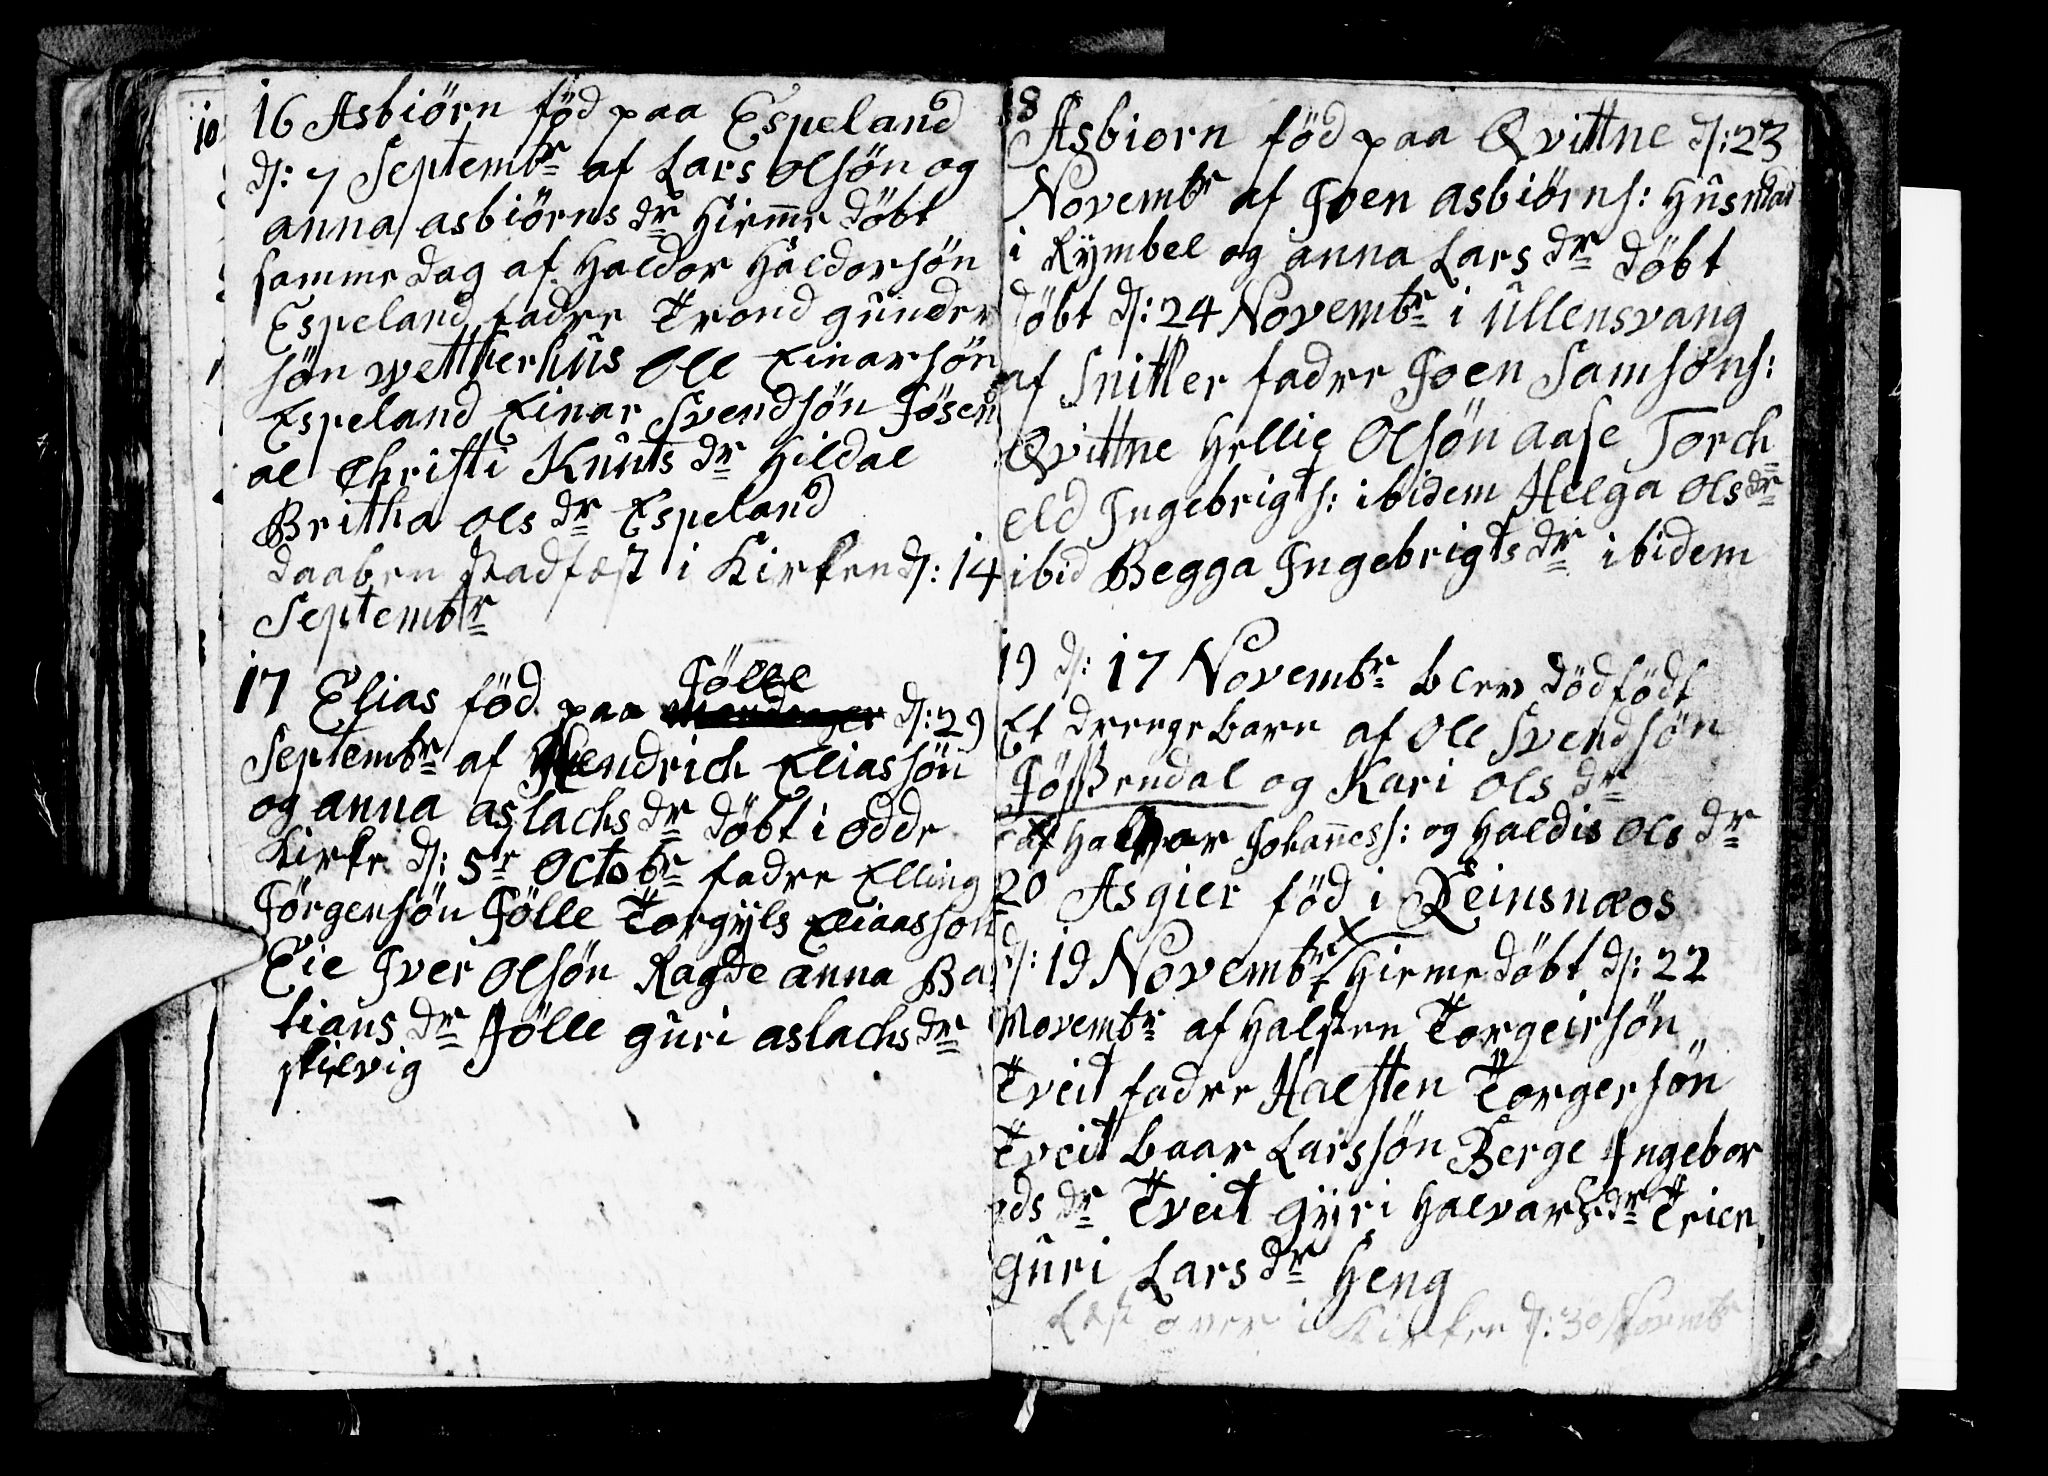 10
16 Asbiörn föd paa Espeland
d: 7 Septembr af Lars olsön og
anna asbiörns dr hiemme döbt
samme dag af Haldor Haldorsön
Espeland fadre Trond gunder
sön Wettherhus Ole Einarsön
Espeland Einar Svendsön Jösen
al Christi Knuts dr Hildal
Britha ols dr Espeland
daaben stadfæst i Kirken d: 14
Septembr
17 Elias föd paa Jölle d: 29
Septembr af Hendrich Eliassön
og anna aslachs dr döbt i odde
Kirke d: 5te Octobr fadre Elling
Jörgensön Jölle Torgyls Eliaasson
Eie Iver olsön Ragde anna Ba
tians dr Jölle guri aslachs dr
skielvig
18
Asbiorn föd paa Qvittne d: 23
Novembr af Joen asbiörns: Husmand
i Rymbel og anna Lars dr döbt
döbt d: 24 Novembr i ullensvang
af Snitler fadre Joen Samsöns:
Qvittne Hellie Olsön aase Torch
eld Ingebrigts: ibidem Helga ols dr
ibid Begga Ingebrigts dr ibidem
19 d: 17 Novembr blev dödfödt
Et drengebarn af Ole Svendsön
Jössendal og Kari ols dr
af Halvar Johanness: og Haldis ols dr
20 Asgier föd i Reinsnæos
d: 19 Novembr hieme döbt d: 22
Novembr af Halsten Torgeirsön
Tveit fadre Halsten Torgersön
Tveit baar Larssön Berge Ingebor
gds dr Tveit gyri Halvars dr Trien
guri Lars dr Heng
Læst over i Kirken d: 30 Novembr